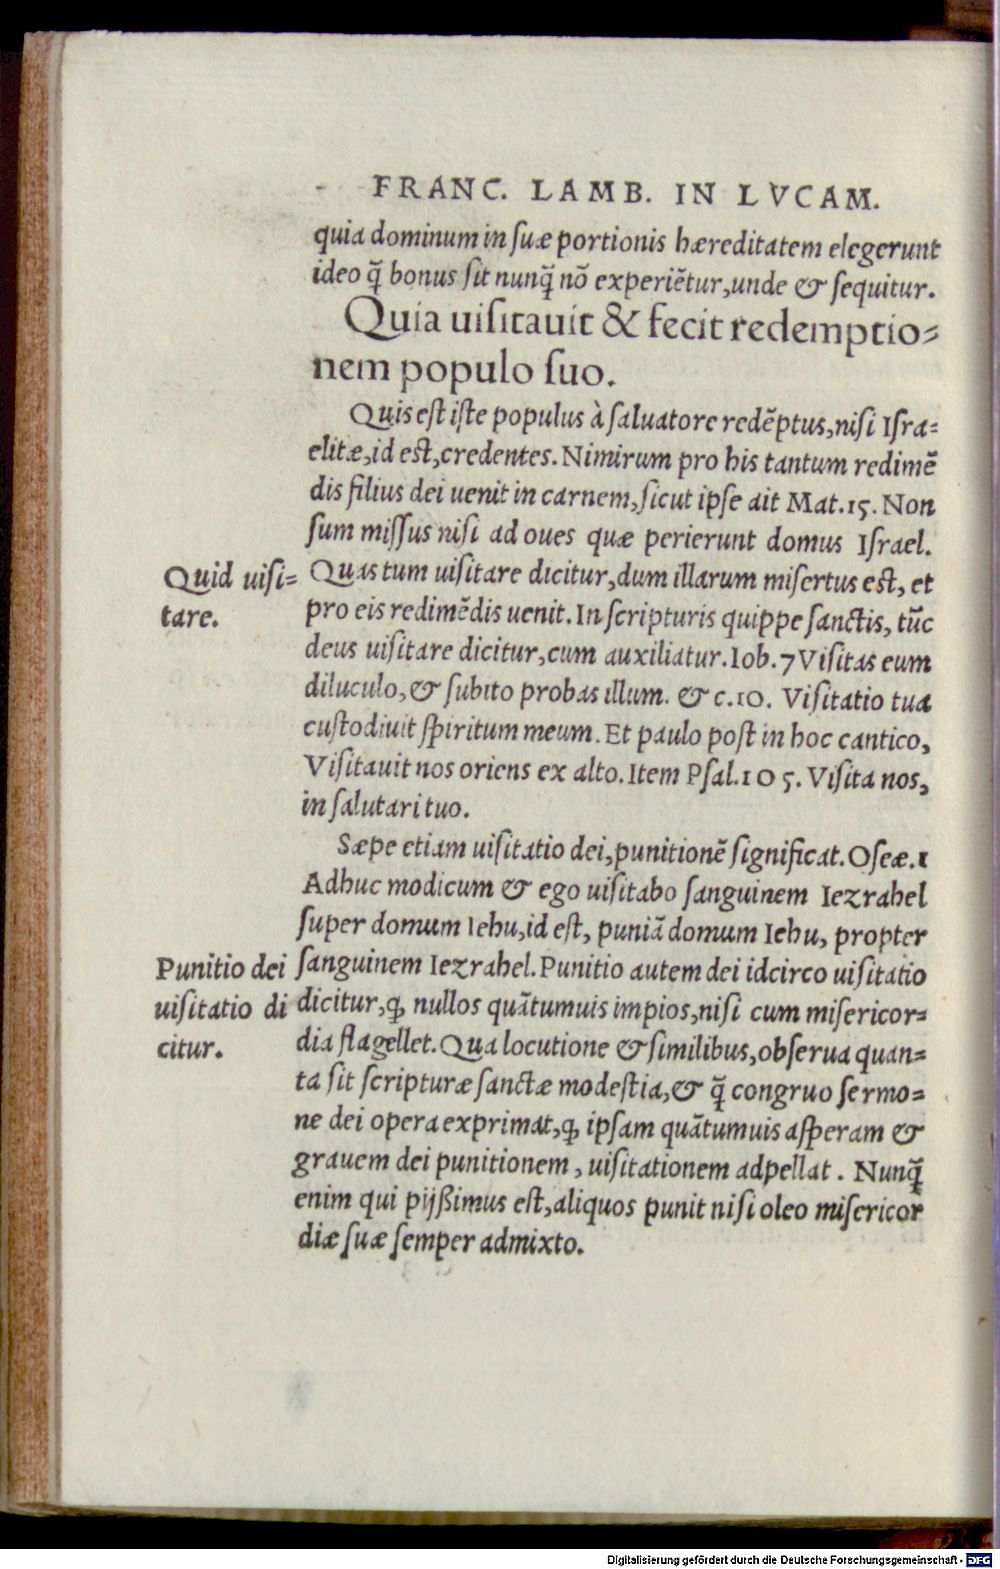 FRANC. LAMB. IN LVCAM.
quia dominum in ſuæ portionis hæreditatem elegerunt
ideo q̃ bonus ſit nunq̃ nõ experiẽtur, unde & ſequitur.
Quia uiſitauit & fecit redemptio=
nem populo ſuo.
Quis eſt iſte populus à ſaluatore redẽptus, niſi Iſra=
elitæ, id eſt, credentes. Nimirum pro his tantum redimẽ
dis filius dei uenit in carnem, ſicut ipſe ait Mat. 15. Non
ſum miſſus niſi ad oues quæ perierunt domus Iſrael.
Quid uiſi=
tare.
Quas tum uiſitare dicitur, dum illarum miſertus eſt, et
pro eis redimẽdis uenit. In ſcripturis quippe ſanctis, tũc
deus uiſitare dicitur, cum auxiliatur. Iob. 7 Viſitas eum
diluculo, & ſubito probas illum. & c. 10. Viſitatio tua
cuſtodiuit ſpiritum meum. Et paulo poſt in hoc cantico,
Viſitauit nos oriens ex alto. Item Pſal. 105. Viſita nos,
in ſalutari tuo.
Sæpe etiam uiſitatio dei, punitionẽ ſignificat. Oſeæ. 1
Adhuc modicum & ego uiſitabo ſanguinem Iezrahel
ſuper domum Iehu, id eſt, puniã domum Iehu, propter
Punitio dei
uiſitatio di
citur.
ſanguinem Iezrahel. Punitio autem dei idcirco uiſitatio
dicitur, ꝙ nullos quãtumuis impios, niſi cum miſericor=
dia flagellet. Qua locutione & ſimilibus, obſerua quan=
ta ſit ſcripturæ ſanctæ modeſtia, & q̃ congruo ſermo=
ne dei opera exprimat, ꝙ ipſam quãtumuis aſperam &
grauem dei punitionem, uiſitationem adpellat. Nunq̃
enim qui pijßimus eſt, aliquos punit niſi oleo miſericor
diæ ſuæ ſemper admixto.
Digitalisierung gefördert durch die Deutsche Forschungsgemeinschaft - DFG